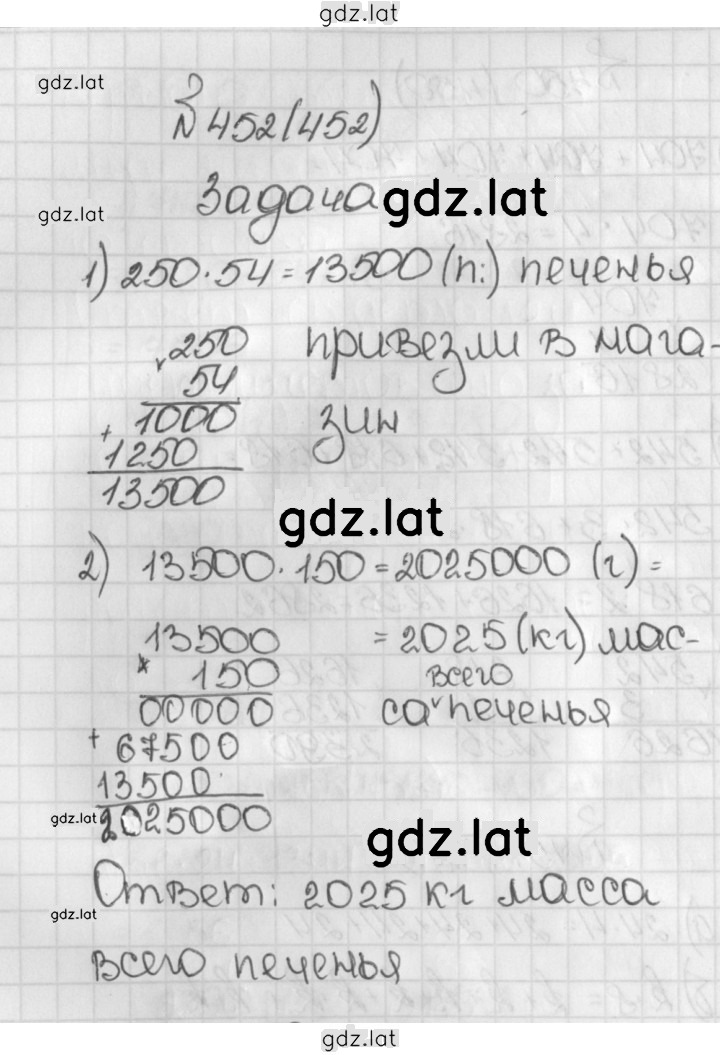 gdz.lat
gdz.lat
№ 452 (452)
gdz.lat
Задача gdz.lat
1) 250·54=13500 (п.) печенья
250 привезли в мага-
× 54
1000 зин
+ 1250
13500
gdz.lat
2) 13500·150=2025000 (г)=
13500 =2025(кг) мас-
× 150 всего
00000 са ˅ печенья
+ 67500
13500
gdz.lat 2025000
gdz.lat
Ответ: 2025 кг масса
gdz.lat
всего печенья
gdz.lat